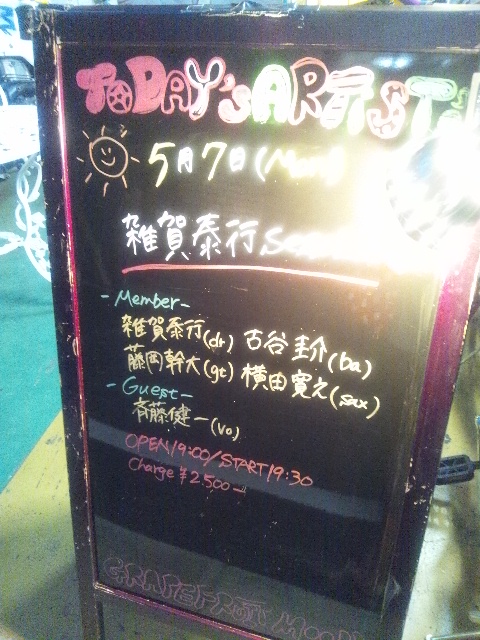 ToDAY's ARTiST
5月7日(Mon)
雑賀泰行
-Member-
雑賀泰行(dr) 古谷圭介(ba)
藤岡幹大(gt) 横田寛之(sax)
-Guest-
斉藤健一(vo)
OPEN19:00/START19:30
Charge ¥2500-
GRAPEFRUIT MOON